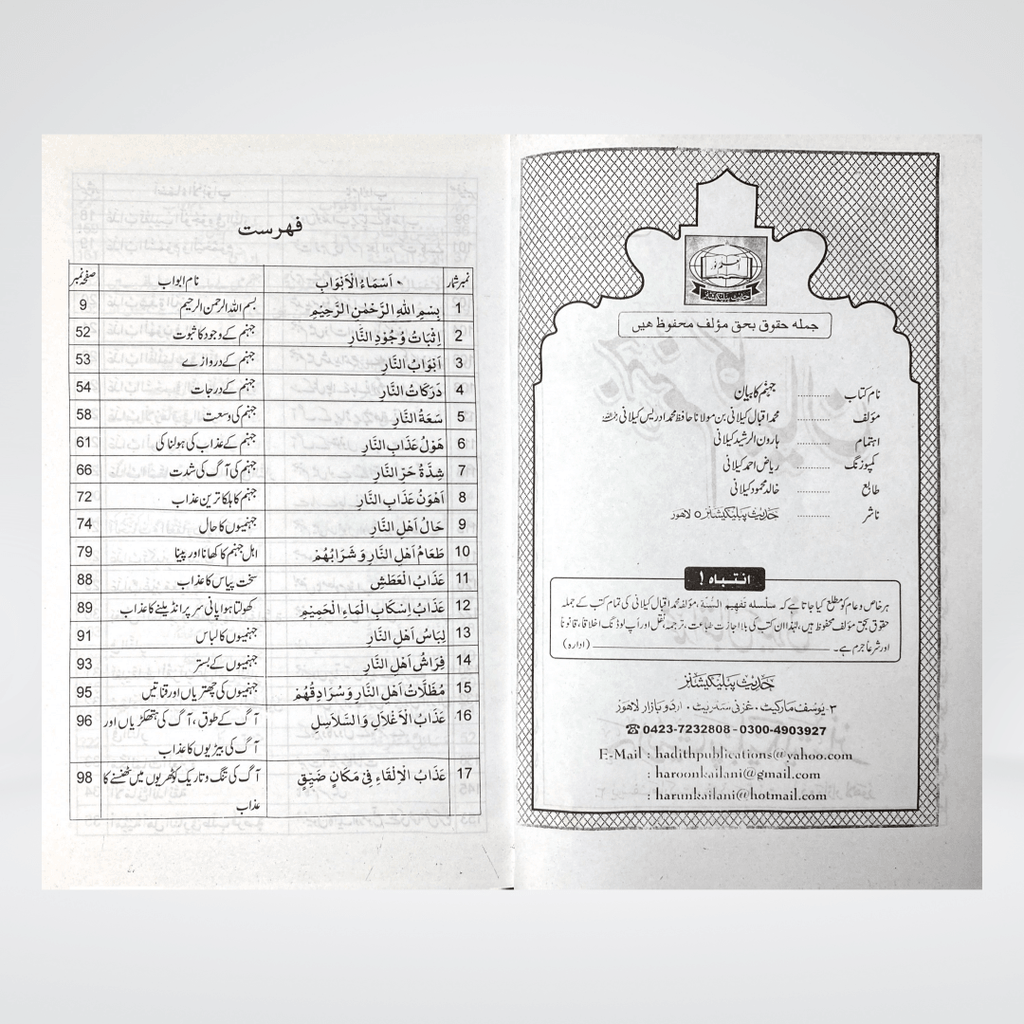 جملہ حقوق بحق مؤلف محفوظ ھیں
نام کتاب ............ جہنم کا بیان
مؤلف ............ محمد اقبال کیلانی بن مولانا حافظ محمد ادریس کیلانی رحمہ اللہ
اہتمام ............ ہارون الرشید کیلانی
کمپوزنگ ............ ریاض احمد کیلانی
طابع ............ خالد محمود کیلانی
ناشر ............ حدیث پبلیکیشنز ٥ لاھور
انتباہ !
ہر خاص و عام کو مطلع کیا جاتا ہے کہ سلسلہ تفہیم السُّنۃ، مؤلفہ محمد اقبال کیلانی کی تمام کتب کے جملہ
حقوق بحق مؤلف محفوظ ہیں، لہٰذا ان کتب کی بلا اجازت طباعت، ترجمہ، نقل اور اَپ لوڈنگ اخلاقاً، قانوناً
اور شرعاً جرم ہے۔ (ادارہ)
حدیث پبلیکیشنز
۳۔یوسف مارکیٹ ، غزنی سٹریٹ ، اردو بازار لاھور
☎ 0423-7232808 - 0300-4903927
E-Mail : hadithpublications@yahoo.com
: haroonkailani@gmail.com
: harunkailani@hotmail.com
فہرست
نمبر شمار اَسْمَاءُ الْاَبْوَابِ نام ابواب صفحہ نمبر
1 بِسْمِ اللّٰهِ الرَّحْمٰنِ الرَّحِيْمِ بسم اللہ الرحمن الرحیم 9
2 اِثْبَاتُ وُجُوْدِ النَّارِ جہنم کے وجود کا ثبوت 52
3 اَبْوَابُ النَّارِ جہنم کے دروازے 53
4 دَرَكَاتُ النَّارِ جہنم کے درجات 54
5 سَعَةُ النَّارِ جہنم کی وسعت 58
6 هَوْلُ عَذَابِ النَّارِ جہنم کے عذاب کی ہولناکی 61
7 شِدَّةُ حَرِّ النَّارِ جہنم کی آگ کی شدت 66
8 اَهْوَنُ عَذَابِ النَّارِ جہنم کا ہلکا ترین عذاب 72
9 حَالُ اَهْلِ النَّارِ جہنمیوں کا حال 74
10 طَعَامُ اَهْلِ النَّارِ وَ شَرَابُهُمْ اہل جہنم کا کھانا اور پینا 79
11 عَذَابُ الْعَطَشِ سخت پیاس کا عذاب 88
12 عَذَابُ اِسْكَابِ الْمَاءِ الْحَمِيْمِ کھولتا ہوا پانی سر پر انڈیلنے کا عذاب 89
13 لِبَاسُ اَهْلِ النَّارِ جہنمیوں کا لباس 91
14 فِرَاشُ اَهْلِ النَّارِ جہنمیوں کے بستر 93
15 مُظَلَّاتُ اَهْلِ النَّارِ وَ سُرَادِقُهُمْ جہنمیوں کی چھتریاں اور قناتیں 95
16 عَذَابُ الْاَغْلَالِ وَ السَّلَاسِلِ آگ کے طوق، آگ کی ہتھکڑیاں اور 96
آگ کی بیڑیوں کا عذاب
17 عَذَابُ الْاِلْقَاءِ فِیْ مَكَانٍ ضَيِّقٍ آگ کی تنگ و تاریک کوٹھریوں میں ٹھنسنے کا 98
عذاب